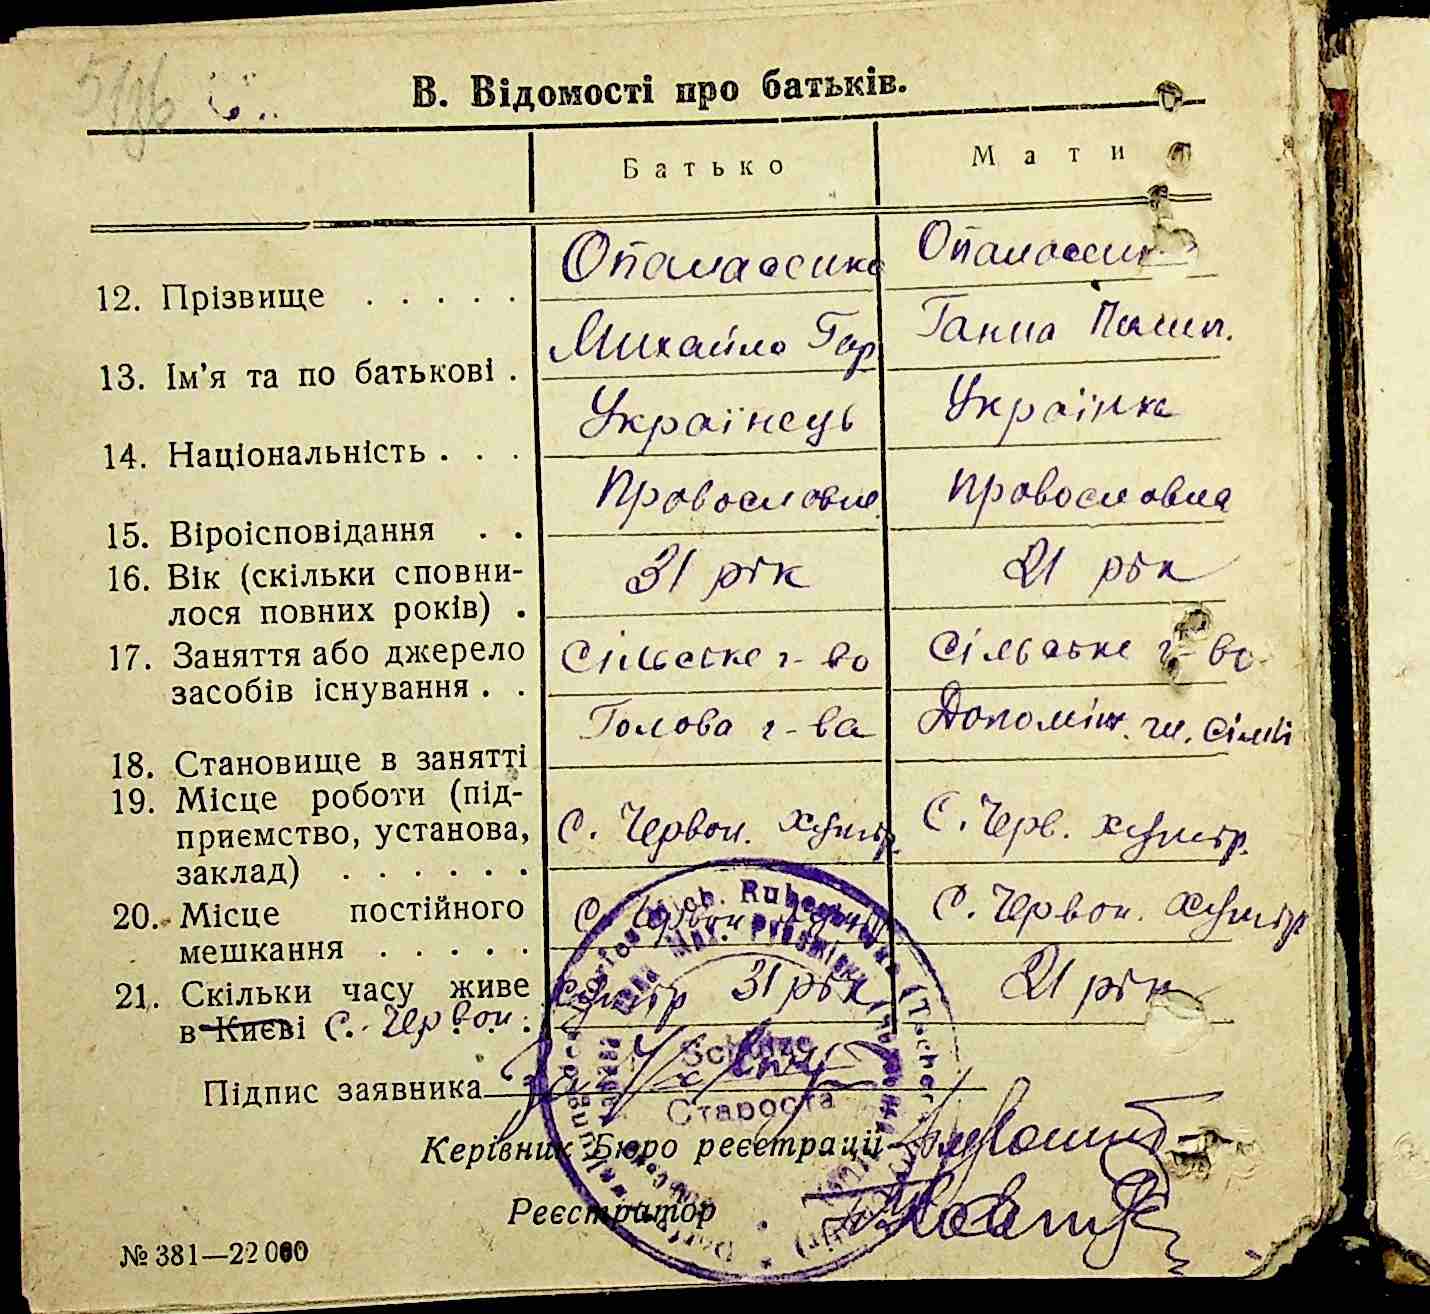 В. Відомості про батьків.
Батько Мати
12. Прізвище . . . . . Опанасенко Опанасенк
13. Ім'я та по батькові . Михайло Гор Ганна Пилип.
14. Національність . . . Українець Українка
15. Віроісповідання . . Провославне Провославна
16. Вік (скільки сповни- 31 рік 21 рік
лося повних років) .
17. Заняття або джерело Сільське г-во Сільське г-во
засобів існування . .
18. Становище в занятті Голова г-ва Допоміж. чл. сімї
19. Місце роботи (під-
приємство, установа, С. Червон. Хутір. С. Черв. хутір.
заклад) . . . . . .
20. Місце постійного С. Червон С. Червон. Хутір
мешкання . . . . .
21. Скільки часу живе Хутір 31 рік 21 рік
в Києві С. Червон.
Підпис заявника
Schulze
Староста
Керівник Бюро реєстрації
Реєстратор
№ 381—22000